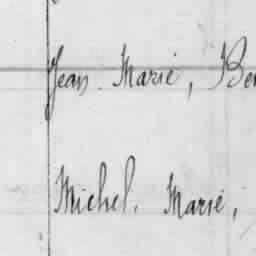 Jean. Marie, Be
Michel. Marie,